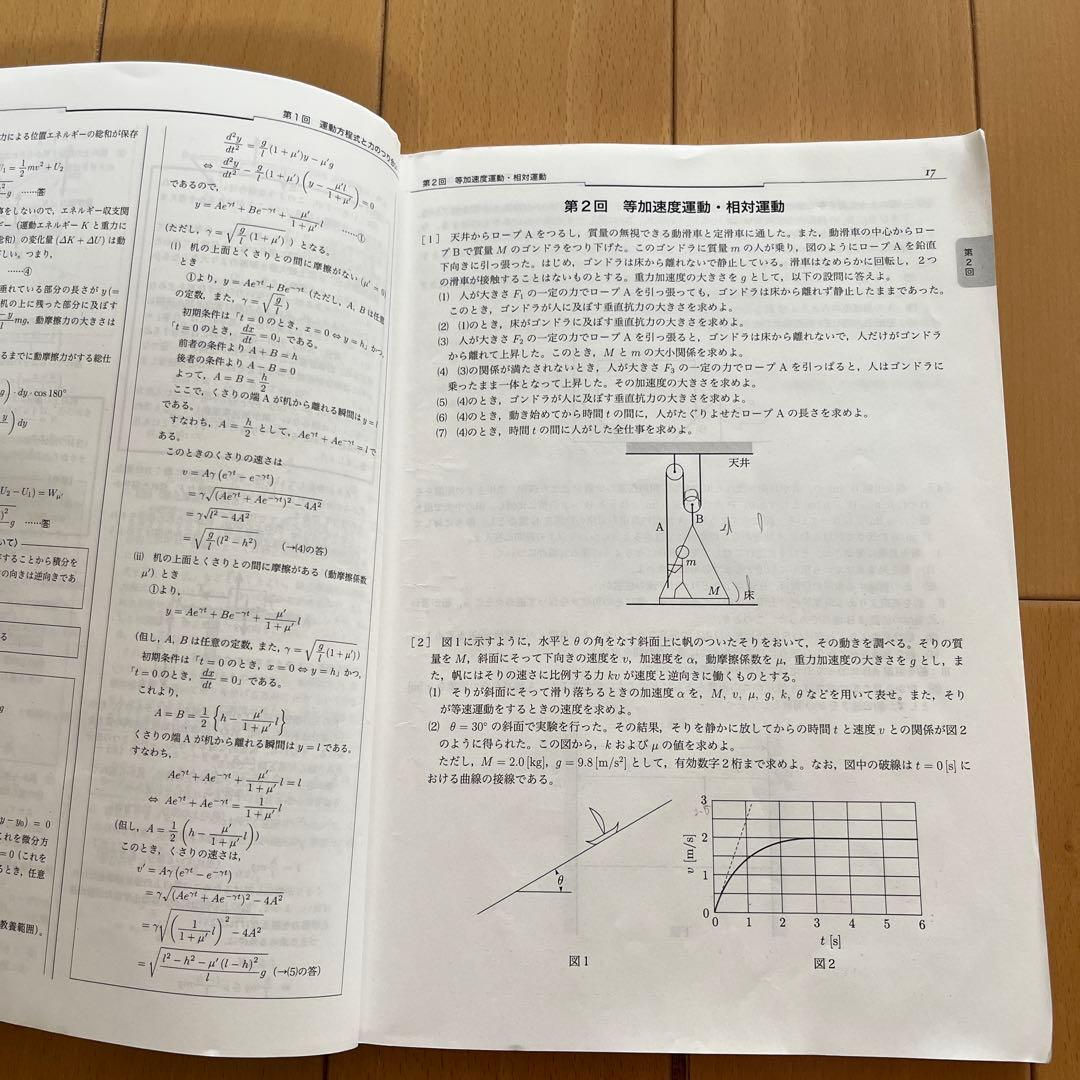 力による位置エネルギーの総和が保存
U₁ = 1/2 mv² + U₂
g ……答
事をしないので，エネルギー収支関
ギー（運動エネルギー K と重力に
総和）の変化量 (ΔK + ΔU) は動
しい。つまり，
……④
垂れている部分の長さが y (=
机の上に残った部分に及ぼす
mg，動摩擦力の大きさは
るまでに動摩擦力がする総仕
g) · dy · cos 180°
dy
U₂ − U₁) = W_μ′
g ……答
いて〉
することから積分を
の向きは逆向きであ
る
(y − y₀) = 0
これを微分方
= 0 (これを
るとき，任意
教養範囲)。
第1回 運動方程式と力のつり合い
d²y/dt² = g/l (1 + μ′)y − μ′g
⇔ d²y/dt² − g/l (1 + μ′)(y − μ′l/(1 + μ′)) = 0
であるので，
y = Ae^γt + Be^−γt + μ′/(1 + μ′) l ……①
(ただし，γ = √(g/l (1 + μ′))) となる。
(i) 机の上面とくさりとの間に摩擦がない (μ′ = 0)
とき
①より，y = Ae^γt + Be^−γt (ただし，A, B は任意
の定数，また，γ = √(g/l))
初期条件は「t = 0 のとき，x = 0 ⇔ y = h」かつ，
「t = 0 のとき，dx/dt = 0」である。
前者の条件より A + B = h
後者の条件より A − B = 0
よって，A = B = h/2
ここで，くさりの端 A が机から離れる瞬間は y = l
である。
すなわち，A = h/2 として，Ae^γt + Ae^−γt = l で
ある。
このときのくさりの速さは
v = Aγ(e^γt − e^−γt)
= γ√((Ae^γt + Ae^−γt)² − 4A²)
= γ√(l² − 4A²)
= √(g/l (l² − h²)) (→(4)の答)
(ii) 机の上面とくさりとの間に摩擦がある（動摩擦係数
μ′）とき
①より，
y = Ae^γt + Be^−γt + μ′/(1 + μ′) l
(但し，A, B は任意の定数，また，γ = √(g/l (1 + μ′)))
初期条件は「t = 0 のとき，x = 0 ⇔ y = h」かつ，
「t = 0 のとき，dx/dt = 0」である。
これより，
A = B = 1/2 {h − μ′/(1 + μ′) l}
くさりの端 A が机から離れる瞬間は y = l である。
すなわち，
Ae^γt + Ae^−γt + μ′/(1 + μ′) l = l
⇔ Ae^γt + Ae^−γt = 1/(1 + μ′) l
(但し，A = 1/2 (h − μ′/(1 + μ′) l))
このとき，くさりの速さは，
v′ = Aγ(e^γt − e^−γt)
= γ√((Ae^γt + Ae^−γt)² − 4A²)
= γ√((1/(1 + μ′) l)² − 4A²)
= √((l² − h² − μ′(l − h)²)/l g) (→(5)の答)
第2回 等加速度運動・相対運動
17
第2回 等加速度運動・相対運動
[1] 天井からロープ A をつるし，質量の無視できる動滑車と定滑車に通した。また，動滑車の中心からロー
プ B で質量 M のゴンドラをつり下げた。このゴンドラに質量 m の人が乗り，図のようにロープ A を鉛直
下向きに引っ張った。はじめ，ゴンドラは床から離れないで静止している。滑車はなめらかに回転し，2つ
の滑車が接触することはないものとする。重力加速度の大きさを g として，以下の設問に答えよ。
(1) 人が大きさ F₁ の一定の力でロープ A を引っ張っても，ゴンドラは床から離れず静止したままであった。
このとき，ゴンドラが人に及ぼす垂直抗力の大きさを求めよ。
(2) (1)のとき，床がゴンドラに及ぼす垂直抗力の大きさを求めよ。
(3) 人が大きさ F₂ の一定の力でロープ A を引っ張ると，ゴンドラは床から離れないで，人だけがゴンドラ
から離れて上昇した。このとき，M と m の大小関係を求めよ。
(4) (3)の関係が満たされないとき，人が大きさ F₃ の一定の力でロープ A を引っぱると，人はゴンドラに
乗ったまま一体となって上昇した。その加速度の大きさを求めよ。
(5) (4)のとき，ゴンドラが人に及ぼす垂直抗力の大きさを求めよ。
(6) (4)のとき，動き始めてから時間 t の間に，人がたぐりよせたロープ A の長さを求めよ。
(7) (4)のとき，時間 t の間に人がした全仕事を求めよ。
第2回
天井
A
B
m
M
床
[2] 図1に示すように，水平と θ の角をなす斜面上に帆のついたそりをおいて，その動きを調べる。そりの質
量を M，斜面にそって下向きの速度を v，加速度を α，動摩擦係数を μ，重力加速度の大きさを g とし，ま
た，帆にはそりの速さに比例する力 kv が速度と逆向きに働くものとする。
(1) そりが斜面にそって滑り落ちるときの加速度 α を，M, v, μ, g, k, θ などを用いて表せ。また，そり
が等速運動をするときの速度を求めよ。
(2) θ = 30° の斜面で実験を行った。その結果，そりを静かに放してからの時間 t と速度 v との関係が図2
のように得られた。この図から，k および μ の値を求めよ。
ただし，M = 2.0 [kg]，g = 9.8 [m/s²] として，有効数字2桁まで求めよ。なお，図中の破線は t = 0 [s] に
おける曲線の接線である。
θ
図1
v [m/s]
3
2
1
0
0 1 2 3 4 5 6
t [s]
図2